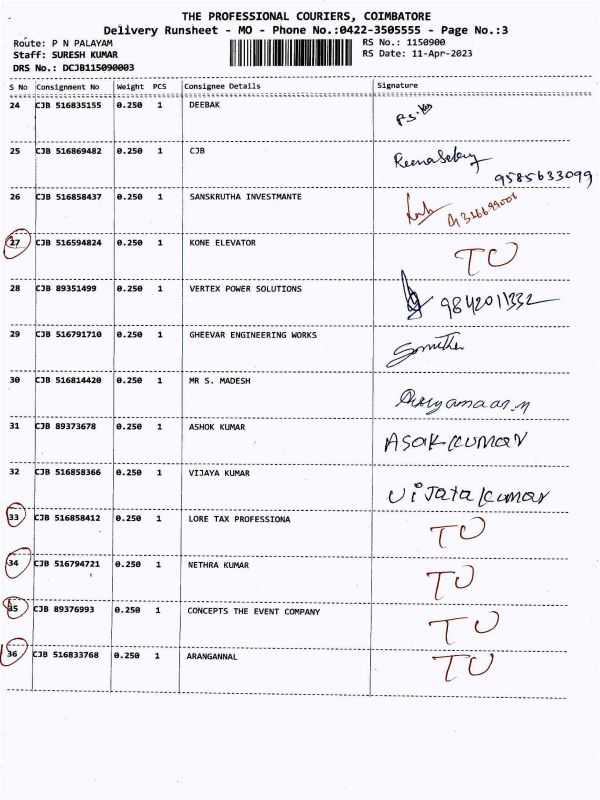 THE PROFESSIONAL COURIERS, COIMBATORE
Delivery Runsheet - MO - Phone No.:0422-3505555 - Page No.:3
Route: P N PALAYAM RS No.: 1150900
Staff: SURESH KUMAR RS Date: 11-Apr-2023
DRS No.: DCJB115090003
S No Consignment No Weight PCS Consignee Details Signature
24 CJB 516835155 0.250 1 DEEBAK
25 CJB 516869482 0.250 1 CJB
9585633099
26 CJB 516858437 0.250 1 SANSKRUTHA INVESTMANTE
27 CJB 516594824 0.250 1 KONE ELEVATOR TO
28 CJB 89351499 0.250 1 VERTEX POWER SOLUTIONS 9842011332
29 CJB 516791710 0.250 1 GHEEVAR ENGINEERING WORKS
30 CJB 516814420 0.250 1 MR S. MADESH
31 CJB 89373678 0.250 1 ASHOK KUMAR ASAK KUMAR
32 CJB 516858366 0.250 1 VIJAYA KUMAR
33 CJB 516858412 0.250 1 LORE TAX PROFESSIONA TO
34 CJB 516794721 0.250 1 NETHRA KUMAR TO
35 CJB 89376993 0.250 1 CONCEPTS THE EVENT COMPANY TO
36 CJB 516833768 0.250 1 ARANGANNAL TO